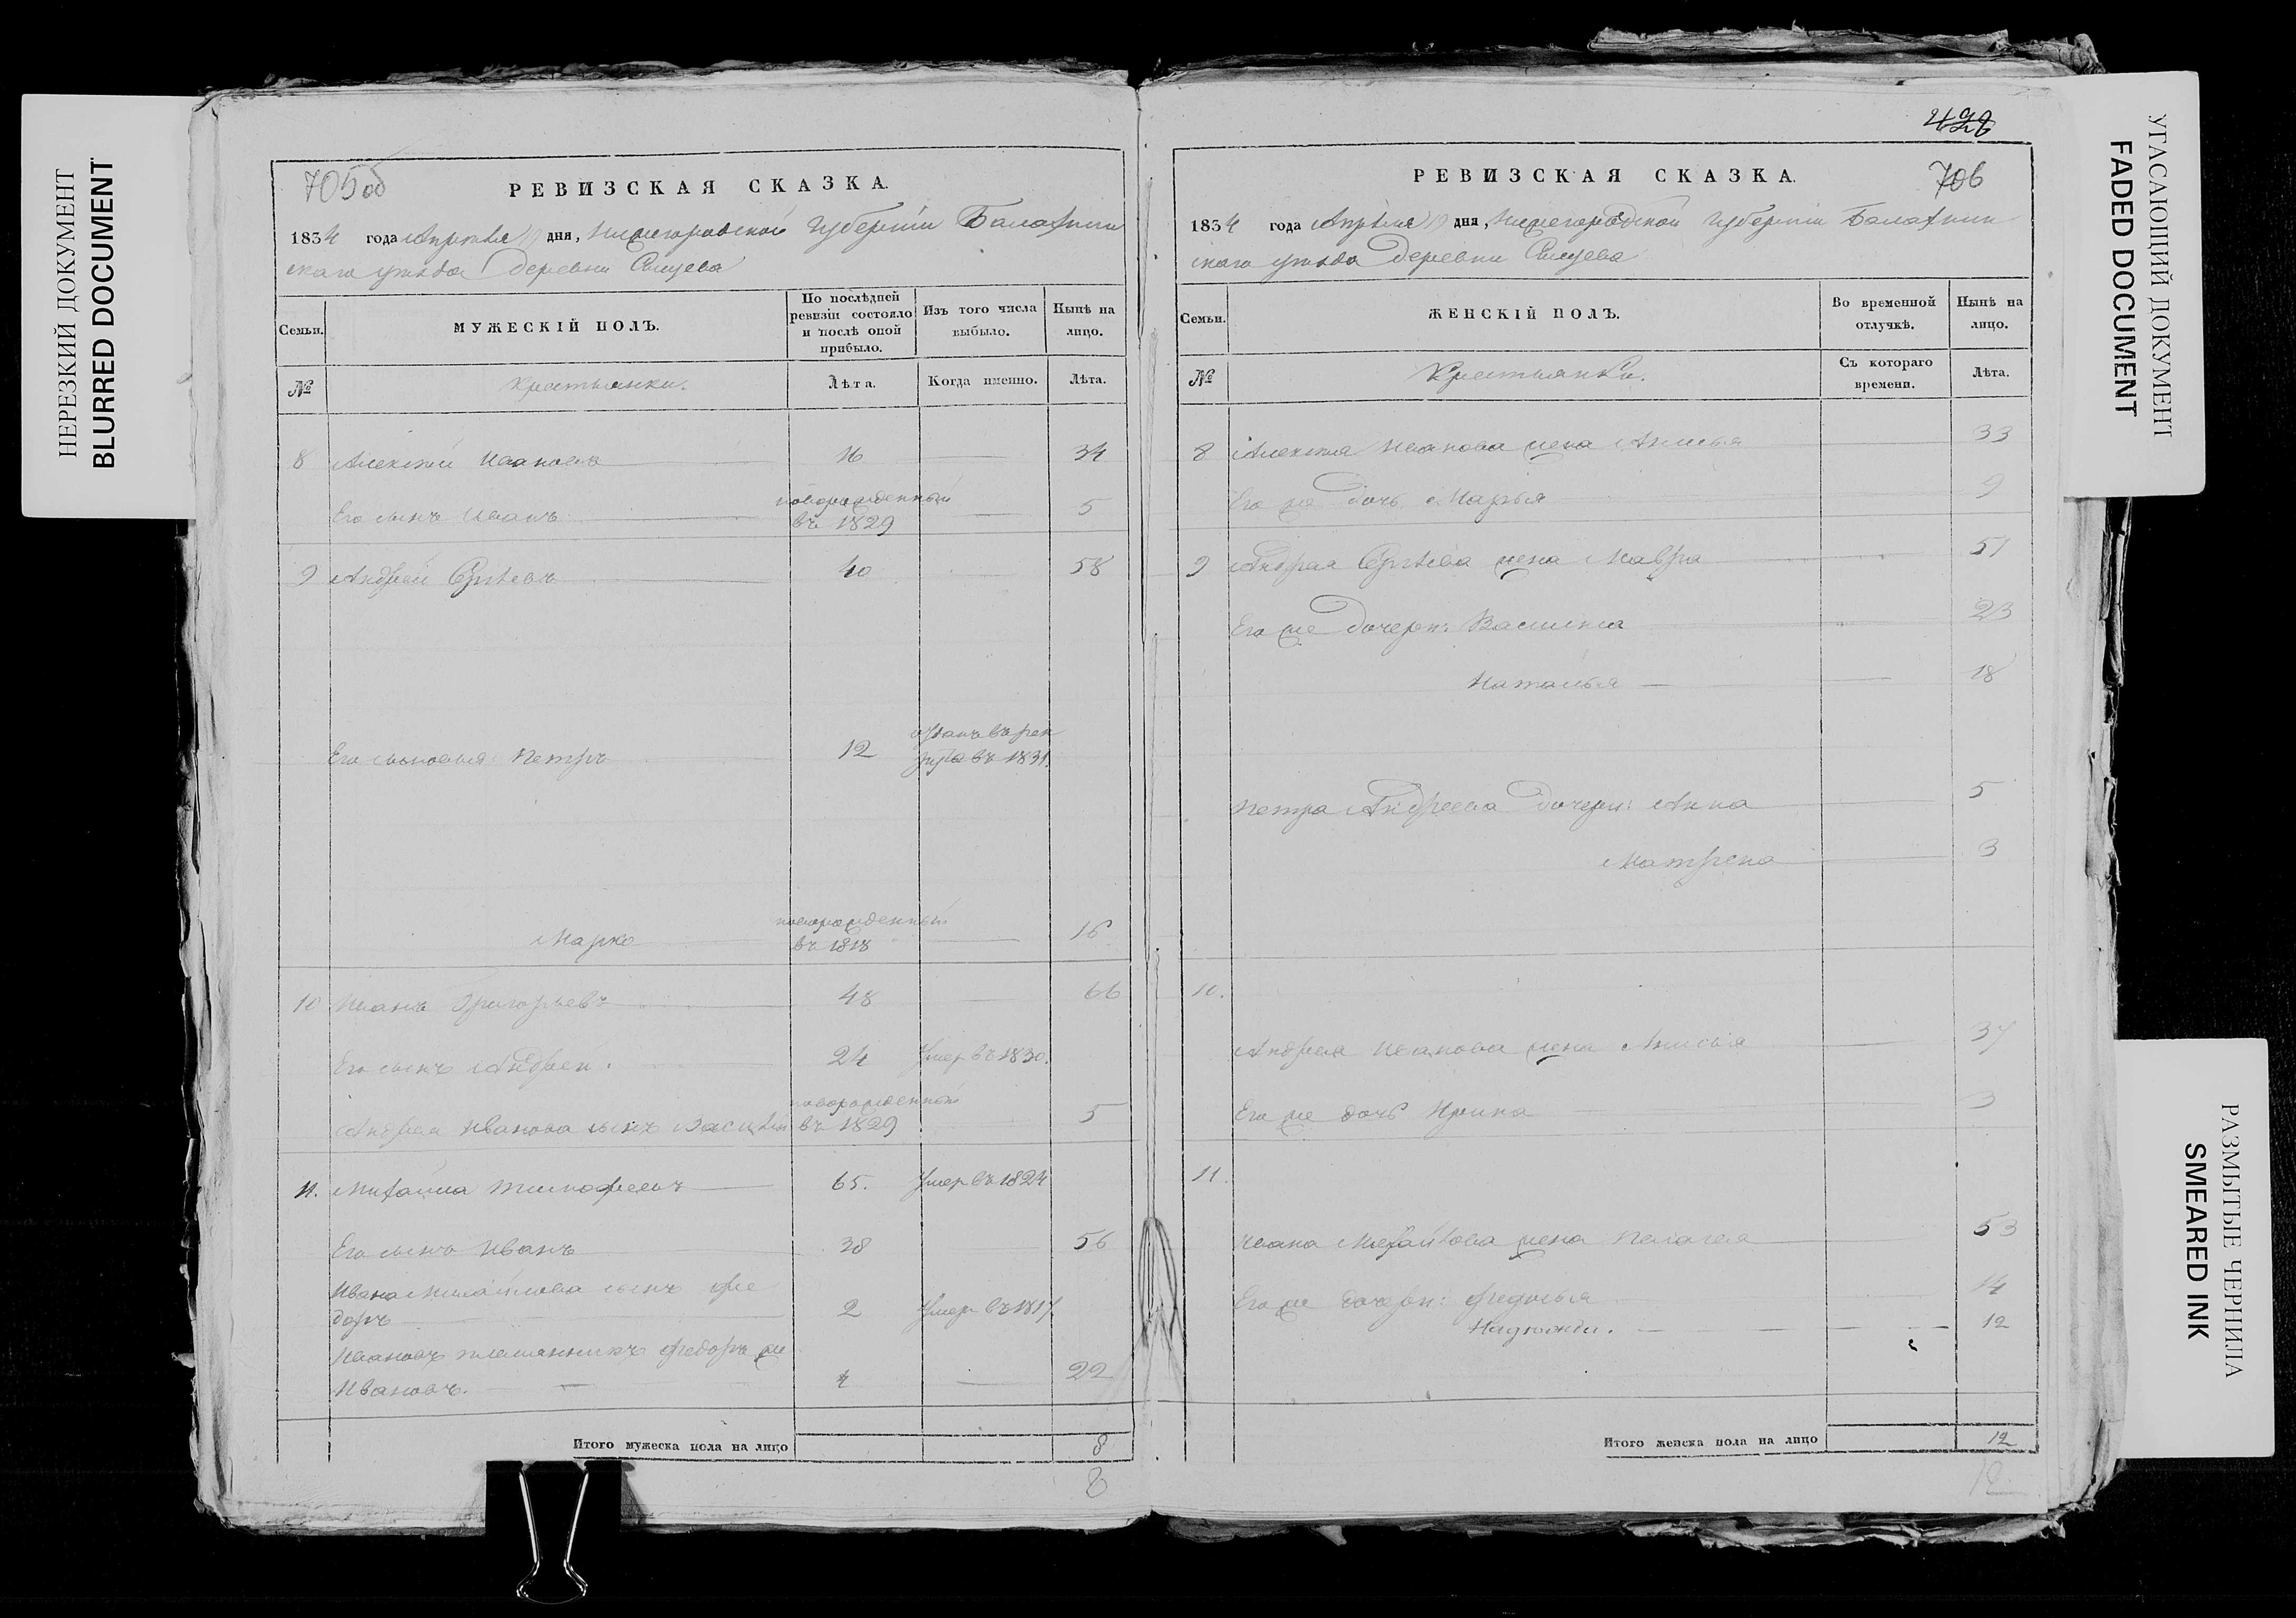 НЕРЕЗКИЙ ДОКУМЕНТ
BLURRED DOCUMENT
705об
РЕВИЗСКАЯ СКАЗКА.
1834 года Апрѣля 19 дня, Нижегородской Губерніи Балахнин
скаго уѣзда Деревни
Семьи.
МУЖЕСКІЙ ПОЛЪ.
По послѣдней ревизіи состояло и послѣ оной прибыло.
Изъ того числа выбыло.
Нынѣ на лицо.
№
Крестьянки.
Лѣта.
Когда именно.
Лѣта.
8 Алексѣй Ивановъ 16 — 34
новорожденный
Его сынъ Иванъ въ 1829 — 5
9 Андрей Сергѣевъ 40 58
отданъ въ рек
Его сыновья: Петръ 12 руты въ 1831.
новорожденный
Марко въ 1818 — 16
10 Иванъ Григорьевъ 48 — 66
Его сынъ Андрей. 24 Умеръ въ 1830.
новорожденный
Андрея Иванова сынъ Василій въ 1829 5
11. Михайла Тимофеевъ 65. Умеръ въ 1824
Его сынъ Иванъ 38 56
Ивана Михайлова сынъ Фе
доръ 2 Умеръ въ 1817
Ивановъ племянникъ Федоръ же
Ивановъ. 4 — 22
Итого мужеска пола на лицо 8
8
428
706
РЕВИЗСКАЯ СКАЗКА.
1834 года Апрѣля 19 дня, Нижегородской Губерніи Балахнин
скаго уѣзда Деревни
Семьи.
ЖЕНСКІЙ ПОЛЪ.
Во временной отлучкѣ.
Нынѣ на лицо.
№
Крестьянки.
Съ котораго времени.
Лѣта.
8 Алексѣя Иванова жена Анисья 33
Его же дочь Марья 9
9 Андрея Сергѣева жена Мавра 51
Его же дочери: Василиса 23
Наталья — 18
Петра Андреева дочери: Анна 5
Матрена 3
10.
Андрея Иванова жена Анисья 37
Его же дочь Ирина 3
11.
Ивана Михайлова жена Пелагея 53
Его же дочери: Федосья 14
Надежда. 12
Итого женска пола на лицо 12
12
УГАСАЮЩИЙ ДОКУМЕНТ
FADED DOCUMENT
РАЗМЫТЫЕ ЧЕРНИЛА
SMEARED INK